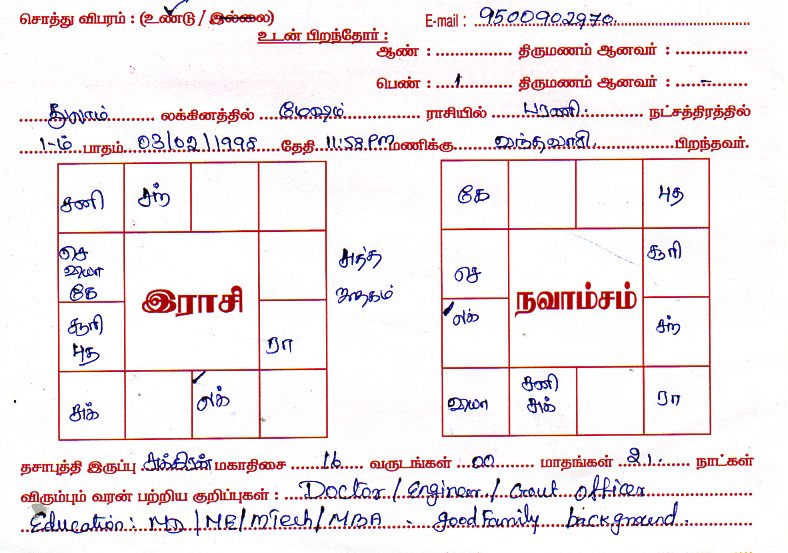 சொத்து விபரம் : (உண்டு / இல்லை) E-mail : 9500902970
உடன் பிறந்தோர் :
ஆண் : ............... திருமணம் ஆனவர் : ...............
பெண் : 1 திருமணம் ஆனவர் : -
துலாம் லக்கினத்தில் மேஷம் ராசியில் பரணி. நட்சத்திரத்தில்
1-ம் பாதம் 03/02/1998 தேதி 11:58 PM மணிக்கு வந்தவாசி. பிறந்தவர்.
சனி சந்
செ
வியா
கே
சூரி
புத
இராசி
ரா
சுக் லக்
சுத்த
ஜாதகம்
கே புத
செ சூரி
லக் நவாம்சம் சந்
வியா சனி
சுக் ரா
தசாபுத்தி இருப்பு சுக்கிரன் மகாதிசை 16 வருடங்கள் 00 மாதங்கள் 21 நாட்கள்
விரும்பும் வரன் பற்றிய குறிப்புகள் : Doctor / Engineer / Govt officer
Education: MD / ME / MTech / MBA - good Family background.